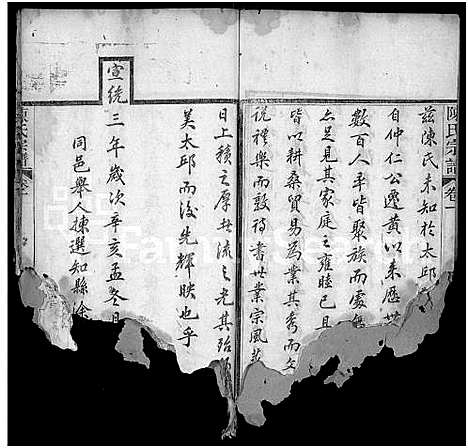 陳氏宗譜 卷一
茲陳氏未知於太邱
自仲仁公遷黃以來歷世
數百人率皆聚族而處無
亦足見其家庭之雍睦已且
皆以耕桑貿易為業其秀而文
說禮樂而敦詩書世業宗風
日上積之厚者流之光其殆
美太邱而後先輝映也乎
宣統三年歲次辛亥孟冬月
同邑舉人揀選知縣余
陳氏宗譜 卷一
FamilySearch